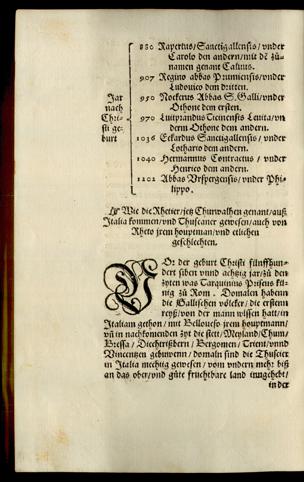 Jar
nach
Chri-
sti ge-
burt
880 Rapertus/Sanctigallensis/vnder
Carolo den andern/mit dē zů-
namen genant Caluus.
907 Regino abbas Prumiensis/vnder
Ludouico dem dritten.
950 Nockerus Abbas S. Galli/vnder
Othone dem ersten.
970 Luitprandus Ticinensis Leuita/vn
dern Othone dem andern.
1036 Eckardus Sanctigallensis/vnder
Lothario dem andern.
1040 Hermannus Contractus/vnder
Henrico dem andern.
1101 Abbas Vrspergensis/vnder Phi-
lippo.
Wie die Rhetier/jetz Churwalhen genant/auß
Italia kommen/vnd Thuscaner gewesen/auch von
Rheto jrem houptman/vnd etlichen
geschlechten.
VOr der geburt Christi fünffhun-
dert siben vnnd achtzig jar/zů den
zyten was Tarquinius Priscus kü-
nig zů Rom. Domalen habenn
die Gallischen völcker/die ersten
reyß/von der mann wissen hatt/in
Italiam gethon/mit Belloueso jrem houptmann/
vn̄ in nachkomenden zyt die stett/Meyland/Chum/
Bressa/Diechtrißbern/Bergomen/Trient/vnnd
Vincentzen gebuwenn/domaln sind die Thuscier
in Italia mechtig gewesen/vom vndern mehr biß
an das ober/vnd gůte fruchtbare land inngehebt/
in der